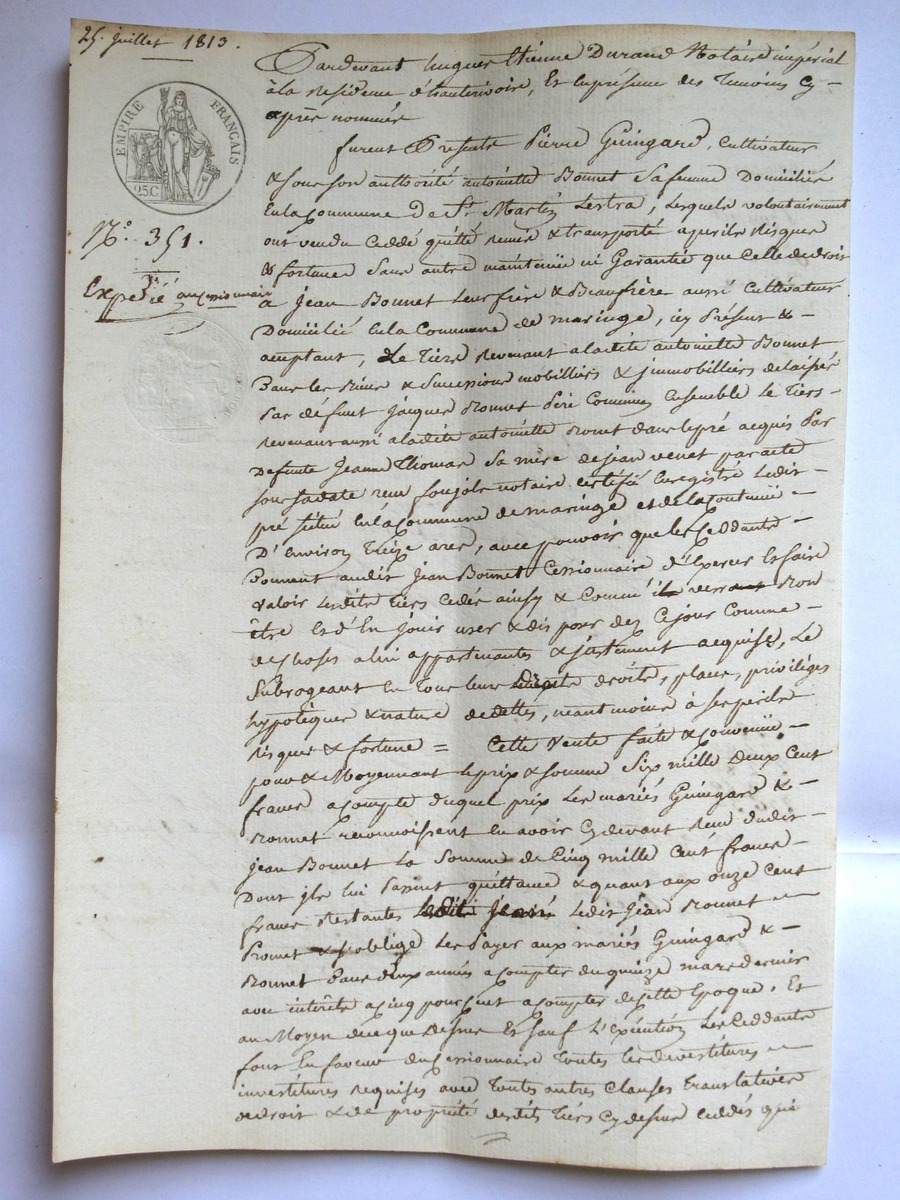 25. juillet 1813.
EMPIRE FRANÇAIS
25C
N.° 351.
Expedié au cessionnaire
Pardevant hugues Etienne Durand Notaire impérial
à la Residence d'hauterivoire, Et en présence des Temoins Cy-
après nommés
furent Présents Pierre Guingard, Cultivateur
& sous son authorité antoinette Bonnet Sa femme Domiciliés
En la Commune De St. Martin Lestra, Lesquels volontairement
ont vendu Ceddé quitté remis & transporté a perils Risques
& fortune Sans autre maintenüe ni Garantie que Celle de droit
a Jean Bonnet Leur frère & Beaufrère aussi Cultivateur
Domicilié En la Commune de maringe, icy Présent & -
aceptant, Le Tiers Revenant a ladite antoinette Bonnet
Dans les Biens & Successions mobilliers & jmmobilliers delaissés
Par défunt Jacques Bonnet Père Commun Ensemble le Tiers -
revenant aussi a ladite antoinette Bonnet dans le pré acquis Par
Defunte Jeanne Thomas Sa mère de jean venet par acte
sous sa date reçu foujols notaire certifié Enregistré Ledit -
pré situé En la Commune de maringe et de la Contenüe -
D'Environ Treize ares, avec pouvoir que les Ceddants -
Donnent audit Jean Bonnet Cessionnaire d'Exercer Et faire
valoir Lesdits Tiers Cedés ainsy & Comm'il verra Bon
être Et d'En jouir user & dis poser dez Ce jour Comme -
de choses a lui appartenantes & justement acquises, Le
Subrogeant En Tous leurs droits, places, privilèges
hypotèques & nature de dettes, néantmoins à ses perils
risques & fortune = Cette Vente faite & Convenüe -
pour & Moyennant le prix & somme Six mille Deux Cent
francs a compte duquel prix Les mariés Guingard & -
Bonnet reconnoissent En avoir Cy devant Reçu dudit -
Jean Bonnet La Somme de Cinq mille Cent francs -
Dont jls lui Passent quittance & quant aux onze Cent
francs Restants Ledit Jean Bonnet -
Promet & s'oblige Les Payer aux mariés Guingard & -
Bonnet Dans deux années a compter du quinze mars dernier
avec intérêts a Cinq pour Cent a compter de cette Epoque. Et
au Moyen de ce que Dessus Et sauf L'exécution Les Ceddants
font En faveur du Cessionnaire Toutes les devestitures -
investitures Requises avec Toutes autres Clauses Translatives
de droit & de propriété desdits Tiers Cy dessus Ceddés qui